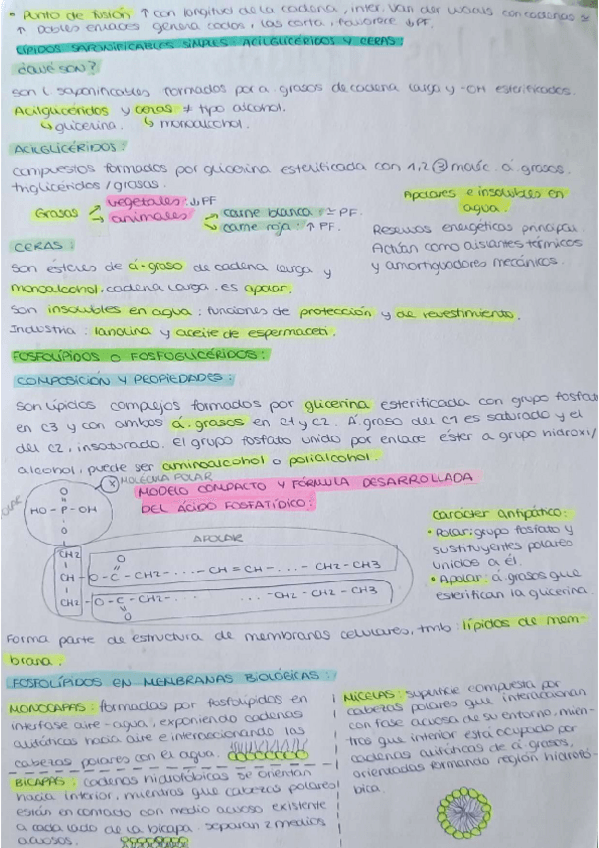 • Punto de fusión ↑ con longitud de la cadena, inter. Van der Waals con cadenas
↑ dobles enlaces genera codos, las corta, favorece ↓PF.
LÍPIDOS SAPONIFICABLES SIMPLES: ACILGLICÉRIDOS Y CERAS:
¿QUÉ SON?
son l. saponificables formados por a. grasos de cadena larga y -OH esterificados.
Acilglicéridos y ceras ≠ tipo alcohol.
↳ glicerina. ↳ monoalcohol.
ACILGLICÉRIDOS:
compuestos formados por glicerina esterificada con 1,2 ③ moléc. á. grasos.
triglicéridos / grasas.
Grasas → vegetales: ↓PF
→ animales → carne blanca: ≃ PF.
→ carne roja: ↑ PF.
Apolares e insolubles en
agua.
Reservas energéticas principal.
Actúan como aislantes térmicos
y amortiguadores mecánicos.
CERAS:
Son ésteres de á-graso de cadena larga y
monoalcohol cadena larga. es apolar.
Son insolubles en agua: funciones de protección y de revestimiento.
Industria: lanolina y aceite de espermaceti.
FOSFOLÍPIDOS O FOSFOGLICÉRIDOS:
COMPOSICIÓN Y PROPIEDADES:
son lípidos complejos formados por glicerina esterificada con grupo fosfato
en C3 y con ambos á. grasos en C1 y C2. Á. graso del C1 es saturado y el
del C2, insaturado. el grupo fosfato unido por enlace éster a grupo hidroxi/
alcohol, puede ser aminoalcohol o polialcohol.
MOLÉCULA POLAR
MODELO COMPACTO Y FÓRMULA DESARROLLADA
DEL ÁCIDO FOSFATÍDICO:
O
HO - P - OH
O
APOLAR
CH2 O
CH - O - C - CH2 - ... - CH = CH - ... - CH2 - CH3
CH2 - O - C - CH2 - ... ... - CH2 - CH2 - CH3
O
Carácter antipático:
• Polar: grupo fosfato y
sustituyentes polares
unidos a él.
• Apolar: á. grasos que
esterifican la glicerina.
Forma parte de estructura de membranas celulares, tmb: lípidos de mem-
brana.
FOSFOLÍPIDOS EN MEMBRANAS BIOLÓGICAS:
MONOCAPAS: formadas por fosfolípidos en
interfase aire-agua, exponiendo cadenas
alifáticas hacia aire e interaccionando las
cabezas polares con el agua.
BICAPAS: cadenas hidrofóbicas se orientan
hacia interior, mientras que cabezas polares
están en contacto con medio acuoso existente
a cada lado de la bicapa. separan 2 medios
acuosos.
MICELAS: superficie compuesta por
cabezas polares que interaccionan
con fase acuosa de su entorno, mien-
tras que interior está ocupado por
cadenas alifáticas de á. grasos,
orientadas formando región hidrofó-
bica.